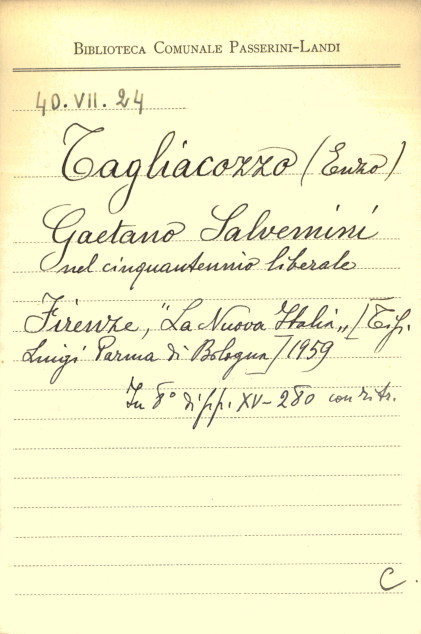 BIBLIOTECA COMUNALE PASSERINI-LANDI
40.VII.24
Tagliacozzo (Enzo)
Gaetano Salvemini
nel cinquantennio liberale
Firenze, "La Nuova Italia„ [Tip.
Luigi Parma di Bologna] 1959
In 8° di pp. XV-280 con ritr.
C.